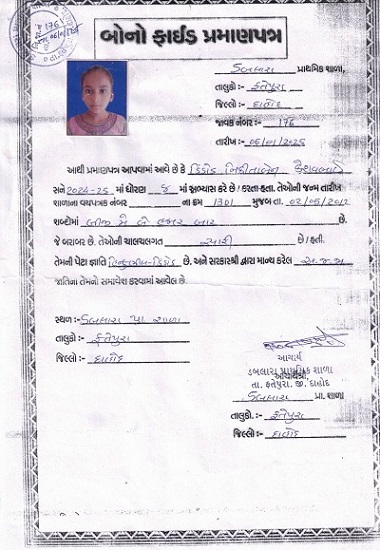 બોનો ફાઈડ પ્રમાણપત્ર
ડબલારા પ્રાથમિક શાળા,
તાલુકો :- ફતેપુરા
જિલ્લો :- દાહોદ
જાવક નંબર :- 176
તારીખ :- 06/01/2025
આથી પ્રમાણપત્ર આપવામાં આવે છે કે ડિંડોડ
સને 2024-25 માં ધોરણ માં અભ્યાસ કરે છે / કરતા હતા. તેઓની જન્મ તારીખ
શાળાના વયપત્રક નંબર ના ક્રમ 1301 મુજબ તા. 02/05/2012
શબ્દોમાં બીજી મે બે હજાર બાર છે.
જે બરાબર છે. તેઓની ચાલચલગત સારી છે / હતી.
તેમની પેટા જ્ઞાતિ હિન્દુ ડિંડોડ છે. અને સરકારશ્રી દ્વારા માન્ય કરેલ અ.જ.જા
જાતિના તેમનો સમાવેશ કરવામાં આવેલ છે.
સ્થળ :- ડબલારા પ્રા. શાળા
તાલુકો :- ફતેપુરા
જિલ્લો :- દાહોદ
આચાર્ય
ડબલારા પ્રાથમિક શાળા
આચાર્યશ્રી,
તા. ફતેપુરા. જી. દાહોદ
ડબલારા પ્રા. શાળા
તાલુકો. :- ફતેપુરા
જિલ્લો :- દાહોદ